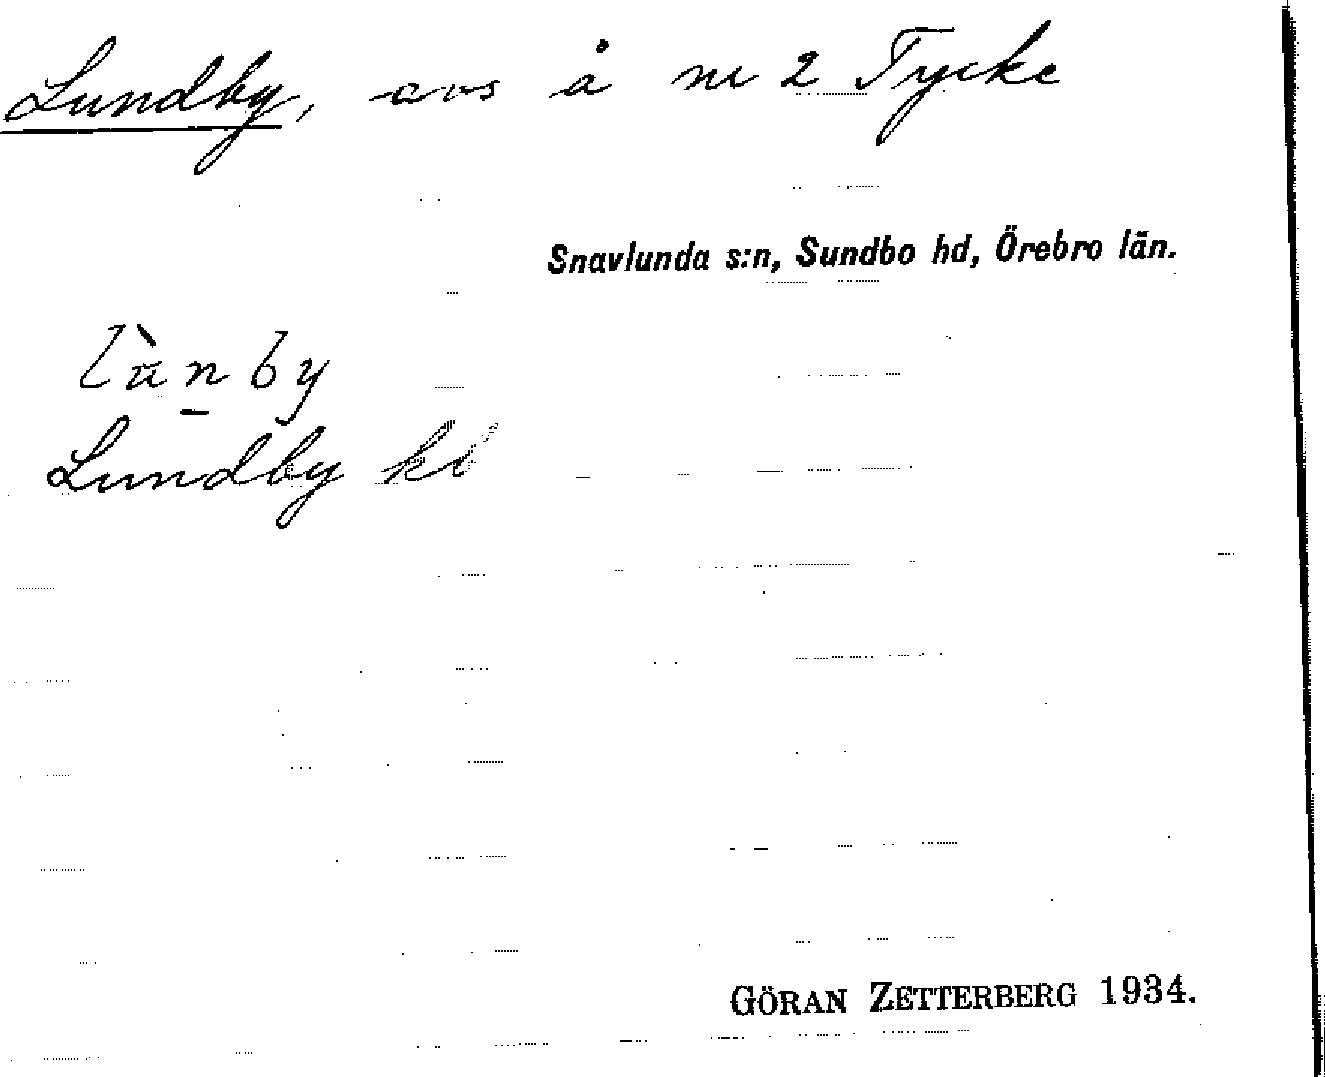 Lundby, avs å nr 2 Tycke
Snavlunda s:n, Sundbo hd, Örebro län.
lùnby
Lundby kö
GÖRAN ZETTERBERG 1934.